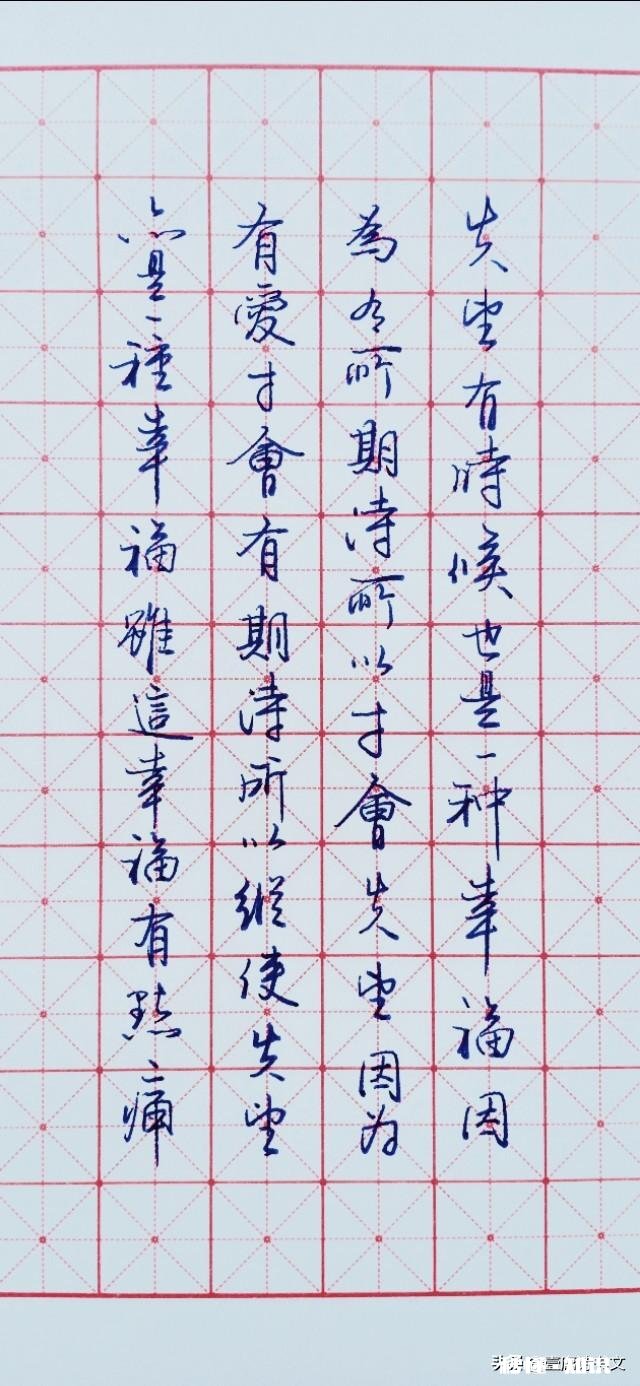 失望有時候也是一种幸福因
為有所期待所以才會失望因为
有愛才會有期待所以縱使失望
亦是一種幸福雖這幸福有點痛